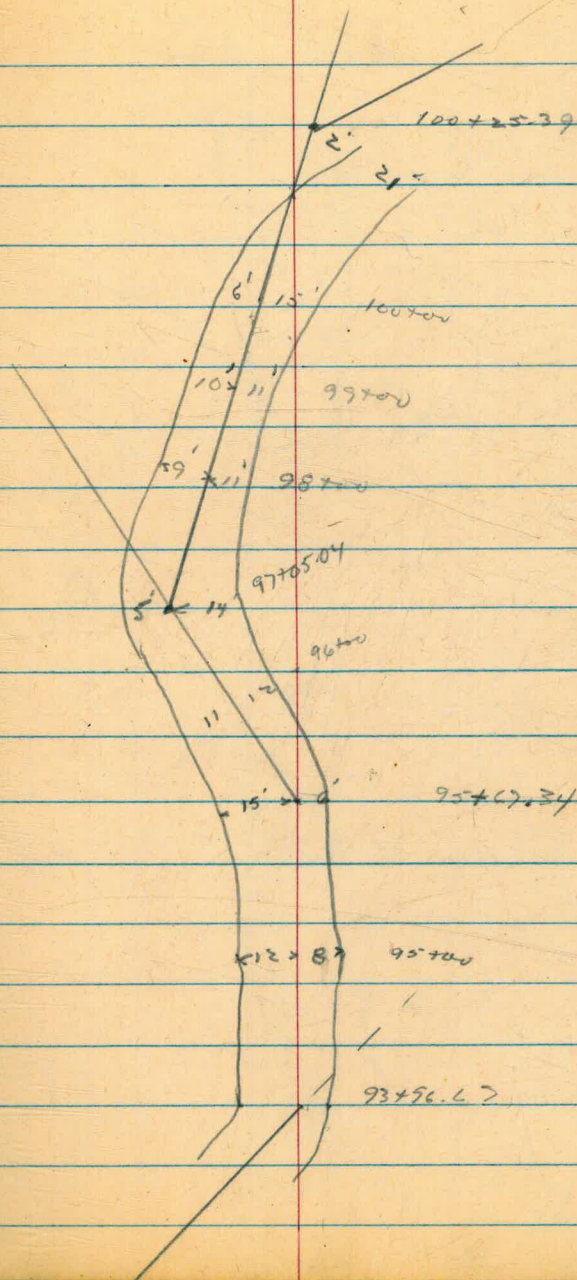 100+25.39
2'
21'
6' 15' 100+00
10' 11' 99+00
9.5' 11' 98+00
97+05.04
5' 14
96+00
11 12
15' 6' 95+67.34
12 8 95+00
93+96.67